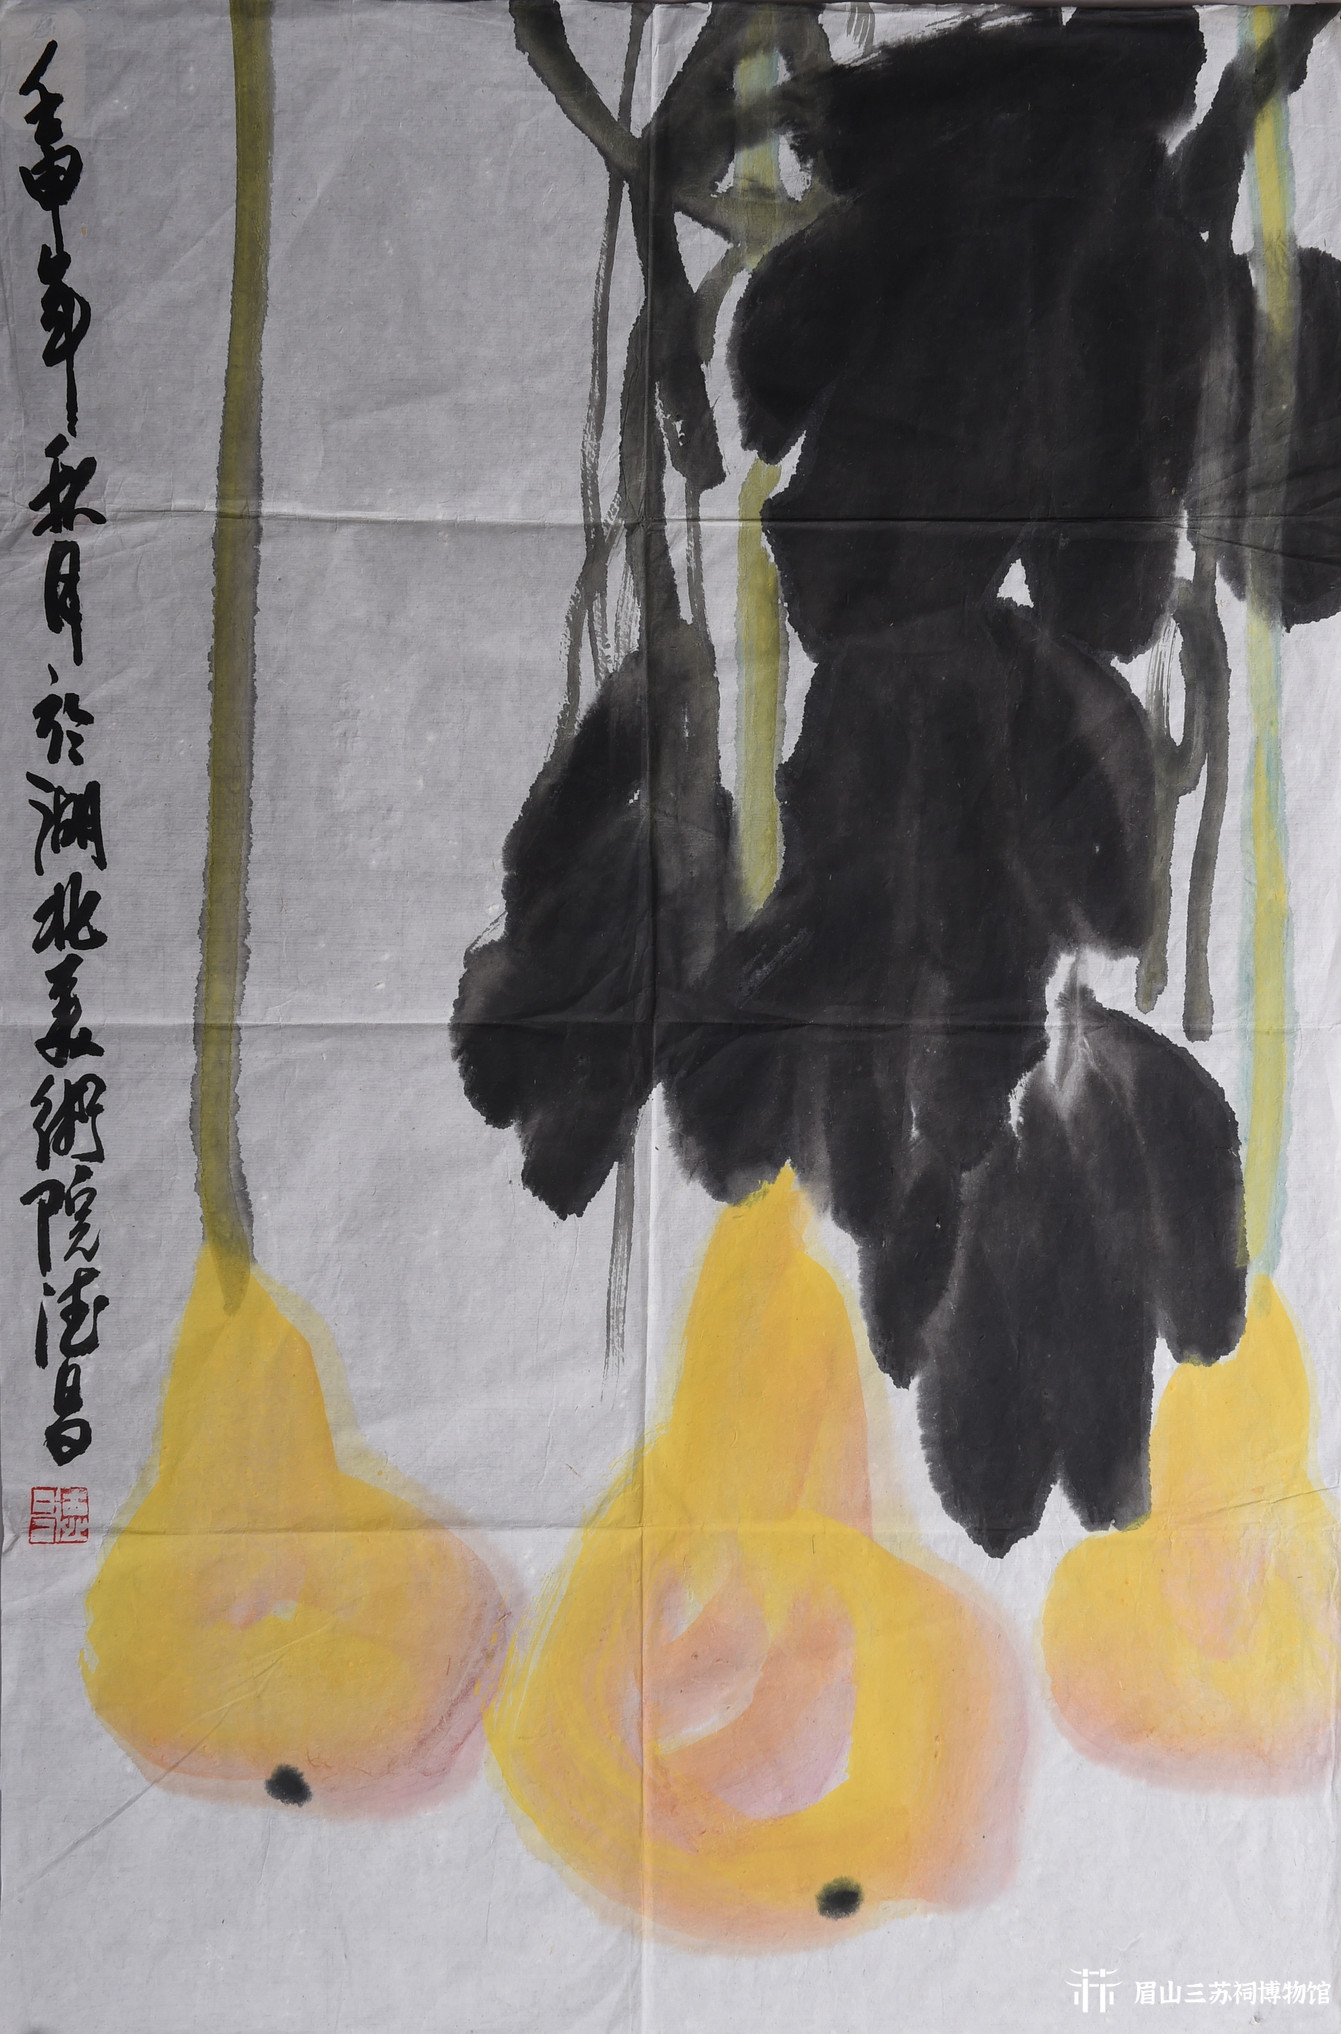 壬申年秋月於湖北美術院德昌
德昌
眉山三苏祠博物馆